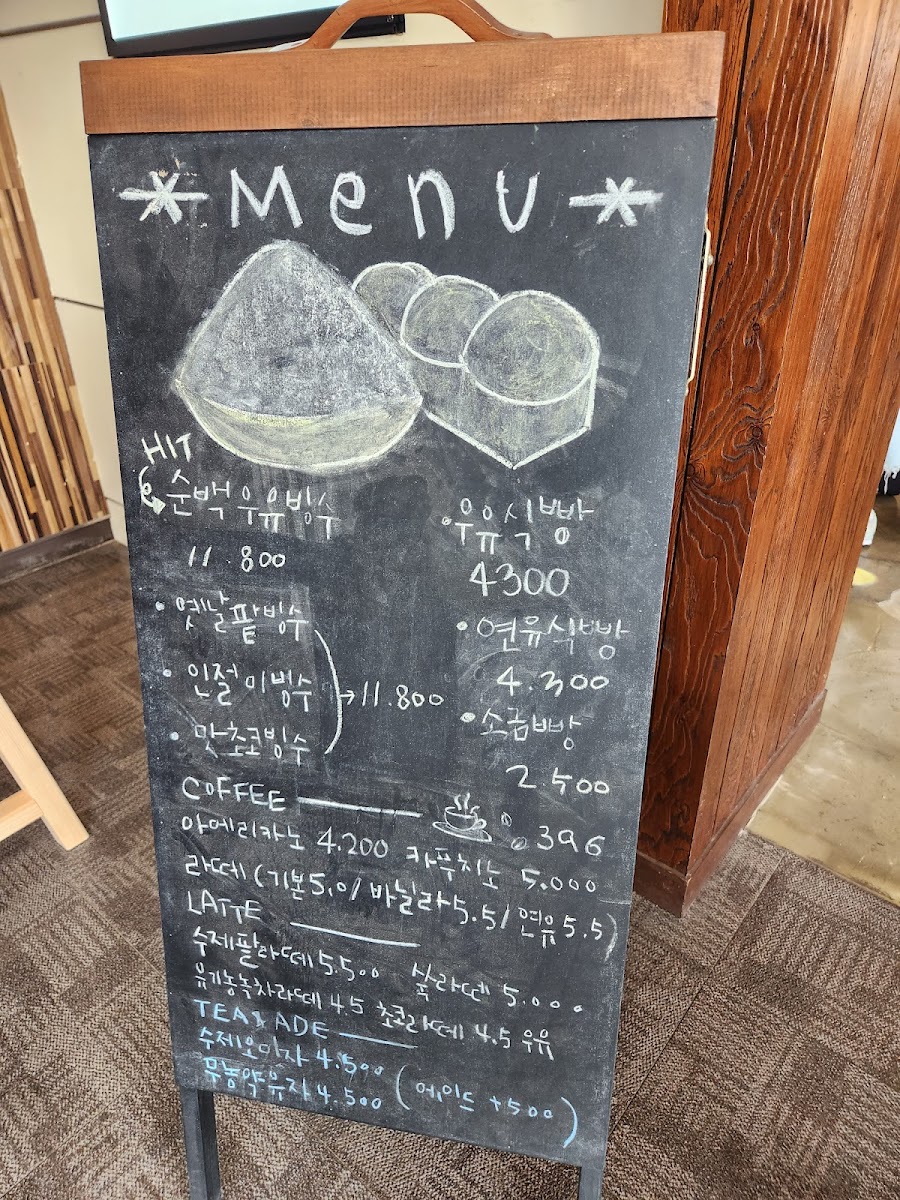 * Menu *
HIT
순백우유빙수
11.800
· 옛날팥빙수
· 인절미빙수
· 맛초코빙수
→ 11.800
· 우유식빵
4300
· 연유식빵
4.300
· 소금빵
2.500
COFFEE
396
아메리카노 4.200 카푸치노 5.000
라떼(기본5.0/바닐라5.5/연유5.5)
LATTE
수제팥라떼 5.500 쑥라떼 5.000
유기농녹차라떼 4.5 초코라떼 4.5 우유
TEA & ADE
수제오미자 4.500
무농약유자 4.500 (에이드 +500)